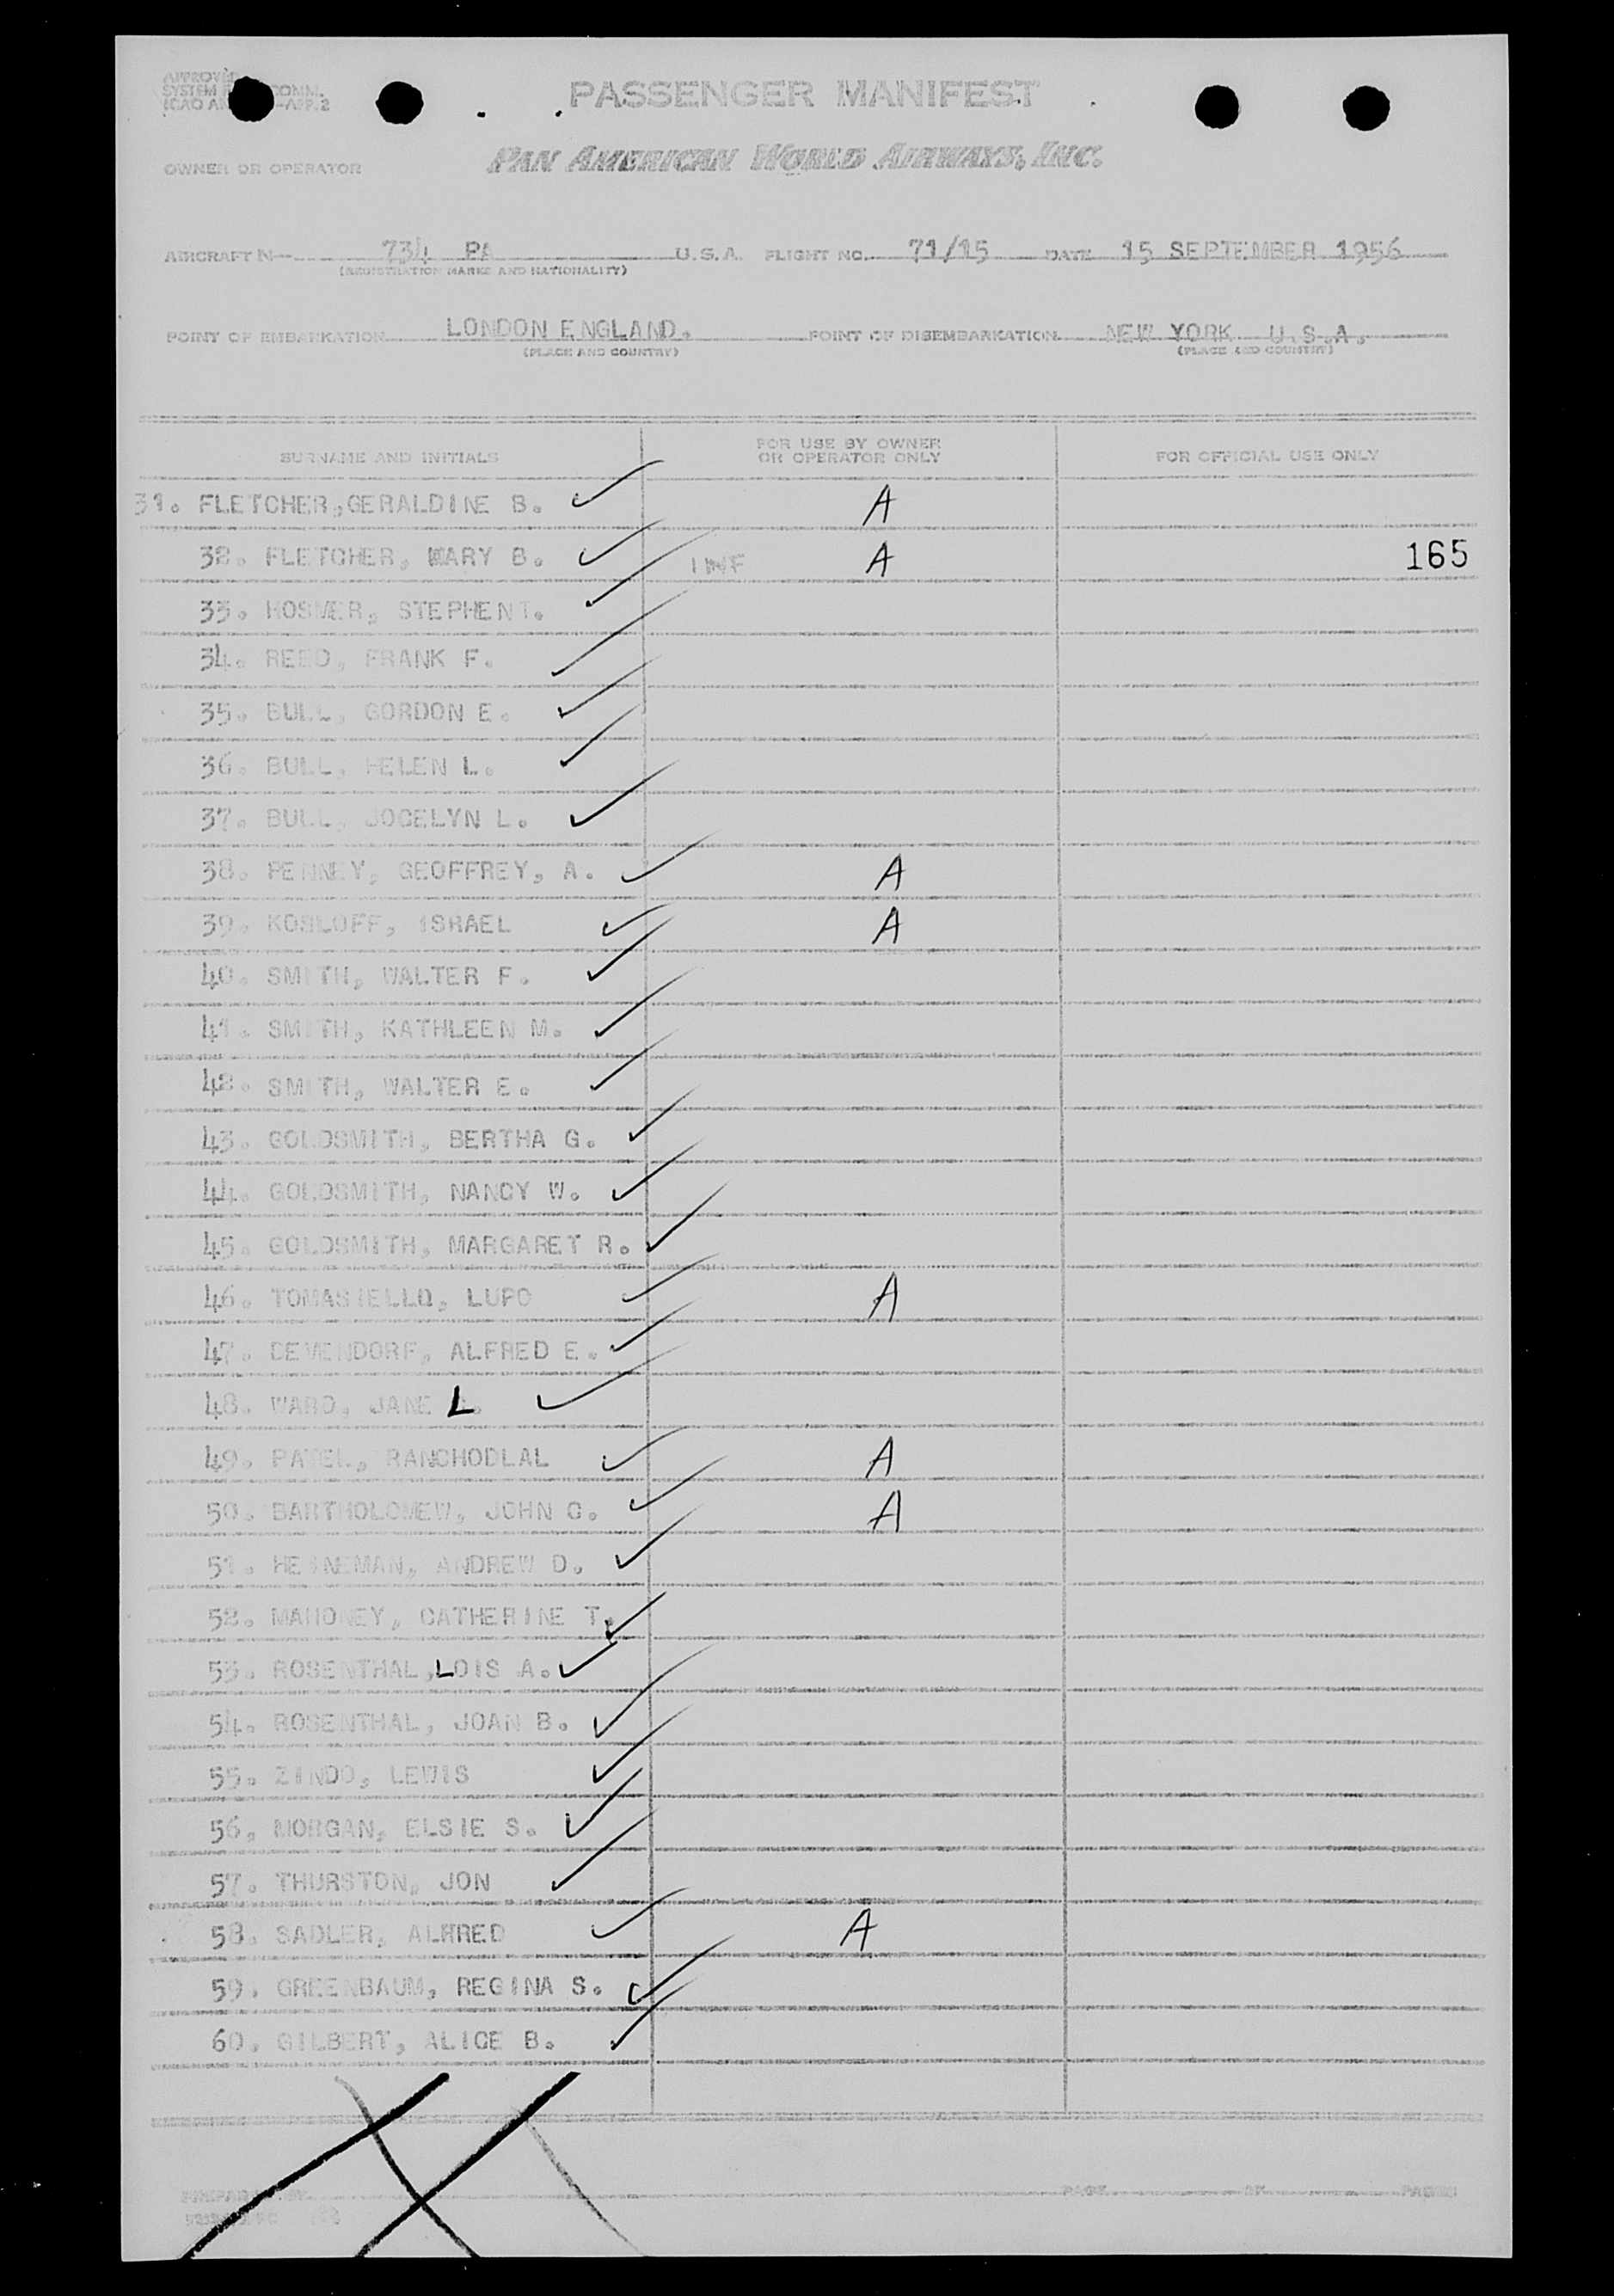 APPROVED
SYSTEM COMM.
ICAO AN -APP.2
PASSENGER MANIFEST
OWNER OR OPERATOR PAN AMERICAN WORLD AIRWAYS, INC.
AIRCRAFT N— 734 PA U.S.A. FLIGHT NO. 71/15 DATE 15 SEPTEMBER 1956
(REGISTRATION MARKS AND NATIONALITY)
POINT OF EMBARKATION LONDON ENGLAND. POINT OF DISEMBARKATION NEW YORK U.S.A.
(PLACE AND COUNTRY) (PLACE AND COUNTRY)
SURNAME AND INITIALS FOR USE BY OWNER OR OPERATOR ONLY FOR OFFICIAL USE ONLY
31. FLETCHER,GERALDINE B. A
32. FLETCHER, MARY B. INF A 165
33. HOSMER, STEPHEN T.
34. REED, FRANK F.
35. BULL, GORDON E.
36. BULL, HELEN L.
37. BULL, JOCELYN L.
38. PENNEY, GEOFFREY, A. A
39. KOSLOFF, ISRAEL A
40. SMITH, WALTER F.
41. SMITH, KATHLEEN M.
42. SMITH, WALTER E.
43. GOLDSMITH, BERTHA G.
44. GOLDSMITH, NANCY W.
45. GOLDSMITH, MARGARET R.
46. TOMASIELLO, LUPO A
47. DEVENDORF, ALFRED E.
48. WARD, JANE L.
49. PATEL, RANCHODLAL A
50. BARTHOLOMEW, JOHN G. A
51. HEINEMAN, ANDREW D.
52. MAHONEY, CATHERINE T.
53. ROSENTHAL,LOIS A.
54. ROSENTHAL, JOAN B.
55. ZINDO, LEWIS
56. MORGAN, ELSIE S.
57. THURSTON, JON
58. SADLER, ALFRED A
59. GREENBAUM, REGINA S.
60. GILBERT, ALICE B.
PAGE OF PAGES